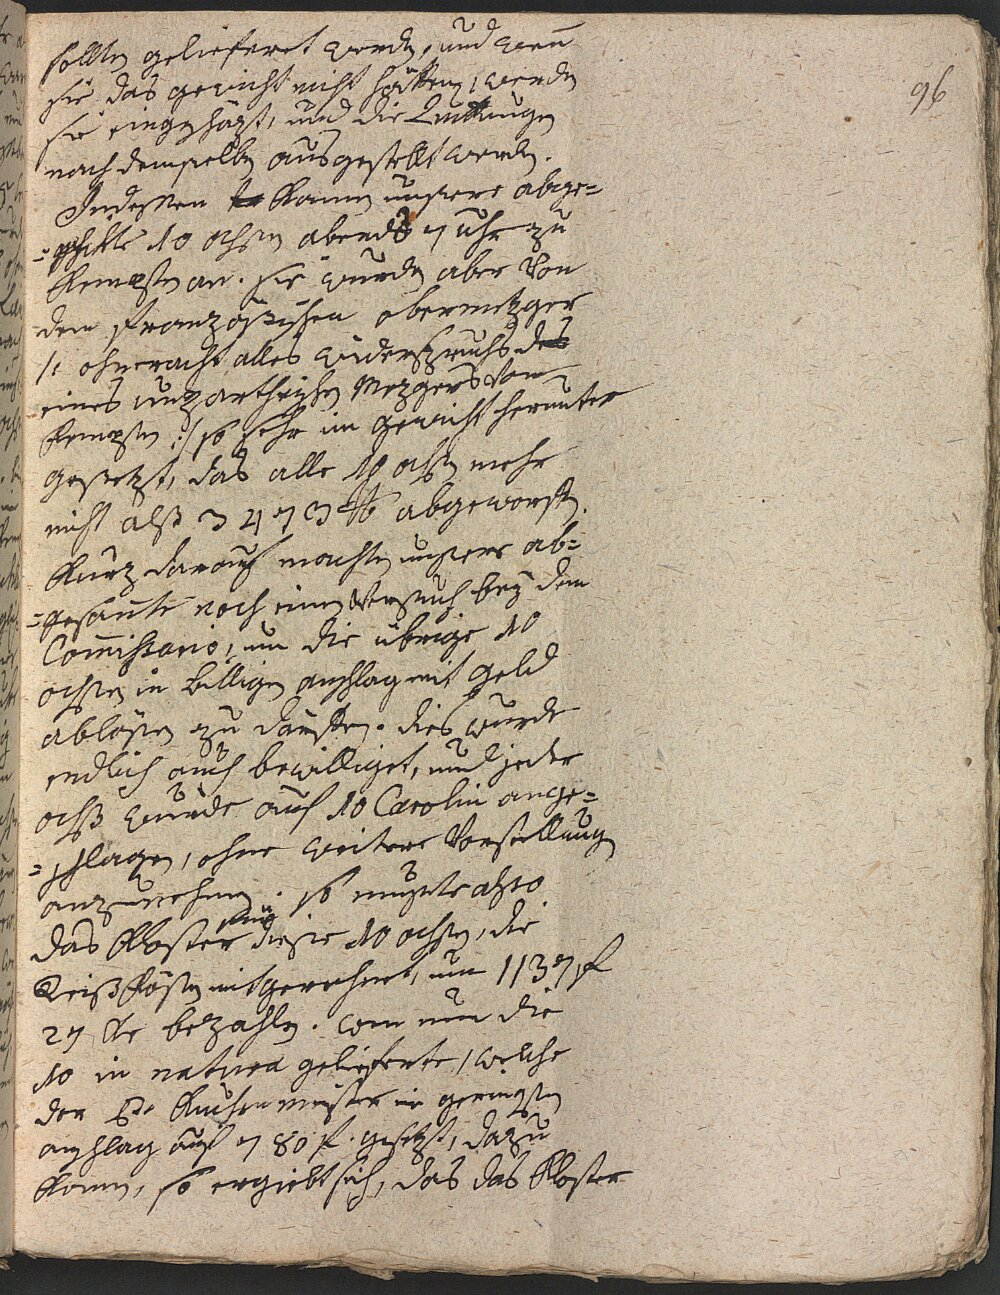 96
sollten geliefert werden, und wenn
sie das gewicht nicht hätten, werden
sie eingeschäzt, und die Quittungen
nach demselben ausgestellt werden.
Indessen kamen unsere abge=
=schikte 10 ochsen abends 7 uhr zu
Kempten an. sie wurden aber von
dem französischen obermetzger
/: ohneracht alles widerspruchs
eines unpartheyischen Mezgers von
Kempten :/ so sehr im gewicht herunter
gesetzt, das alle 10 ochsen mehr
nicht alß 3473 ℔ abgeworfen.
Kurz darauf machten unsere ab=
=gesante noch einen Versuch bey dem
Commissario, um die übrige 10
ochsen in billigen anschlag mit geld
ablösen zu därffen. dies wurde
endlich auch bewilliget, und jeder
ochß wurde auf 10 Carolin ange=
=schlagen, ohne weitere Vorstellung
anzunehmen. so mußte also
das Kloster für diese 10 ochsen, die
Reißkösten mitgerechnet, um 1137 f
27 kr bezahlen. wenn nun die
10 in natura gelieferte, welche
der P. Kuchenmeister im geringsten
anschlag auf 780 f. gesetzt, dazu
kamen, so ergiebt sich, das das Kloster